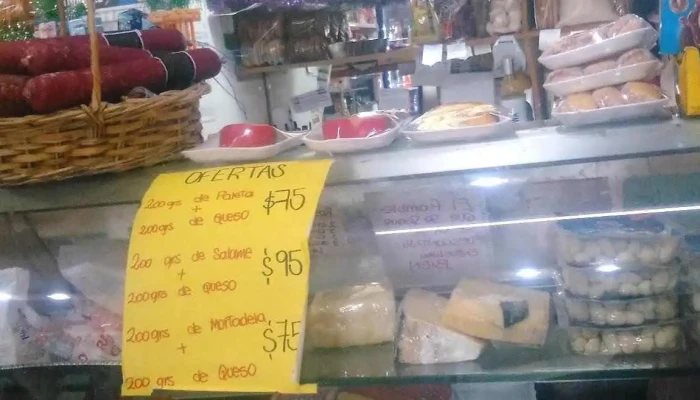 OFERTAS
200grs de Paleta $75
+
200grs de Queso
200 grs de Salame $95
+
200grs de Queso
200grs de Mortadela $75
+
200 grs de Queso